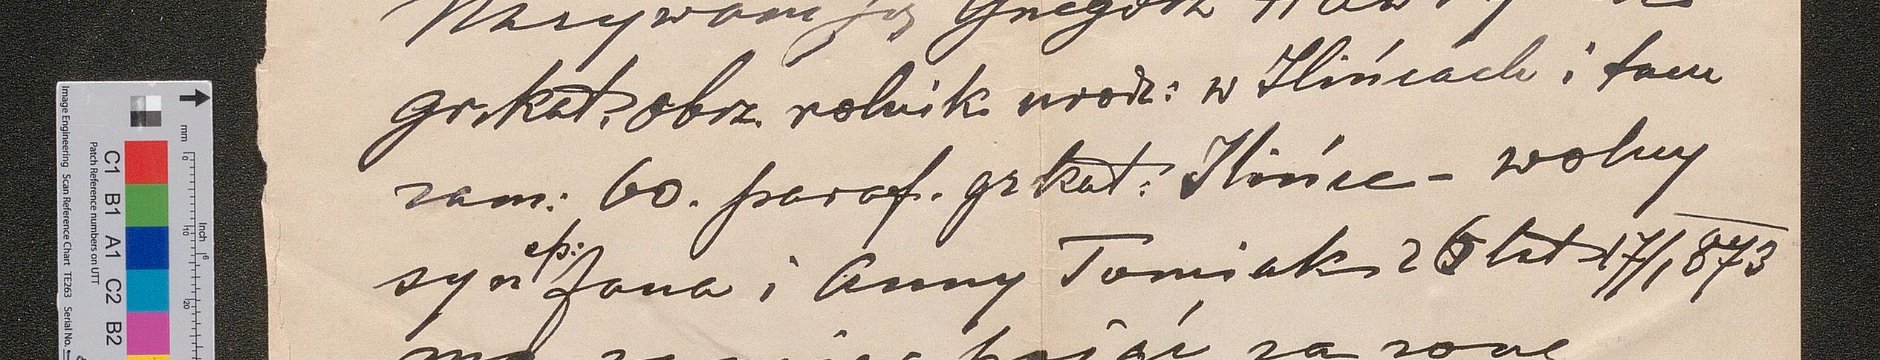 Nazywam się Gregorz
gr. kat. obrz. rolnik urodz: w Ilińcach i tam
zam: 60. paraf. gr kat: Ilińce - wolny
syn śp: Jana i Anny Tomiak 26 lat 17/1 873
za
Image Engineering Scan Reference Chart TE263 Serial No.
Patch Reference numbers on UTT
C1 B1 A1 C2 B2
mm 0 10 20
Inch